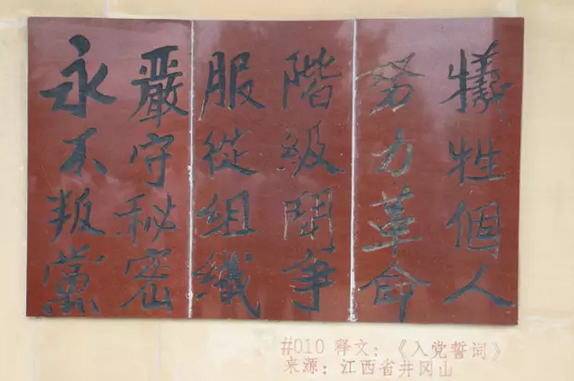 犠牲個人
努力革命
階級鬥爭
服從組織
嚴守秘密
永不叛黨
#010 释文：《入党誓词》
来源：江西省井冈山